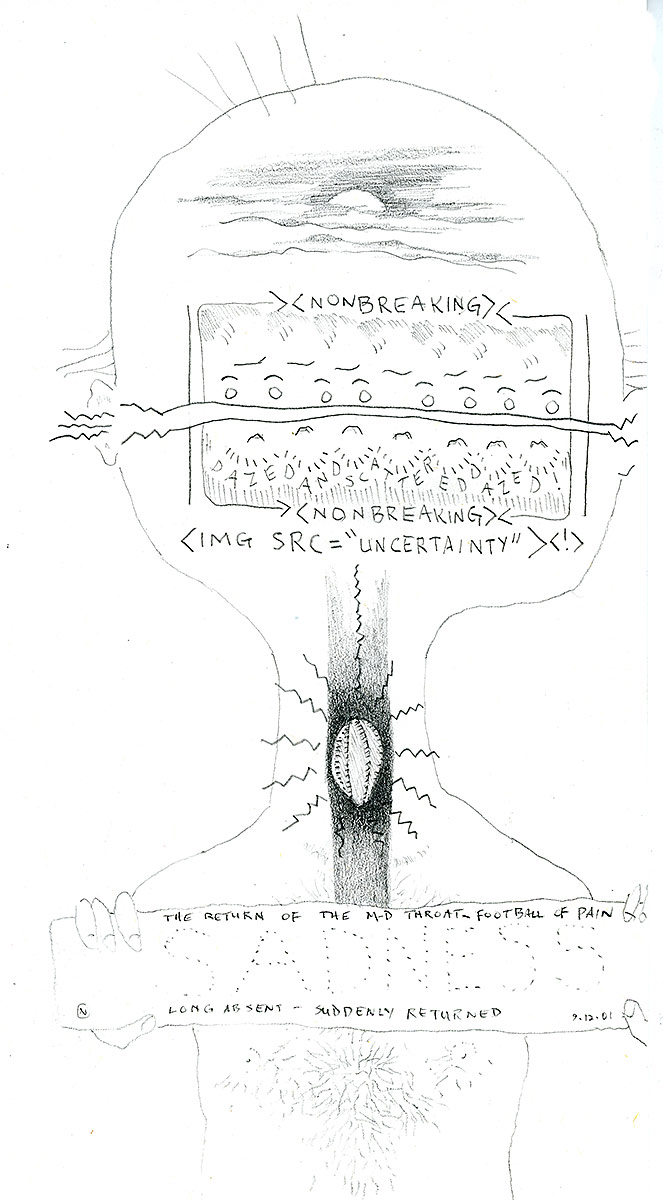 ><NONBREAKING><
DAZED AND SCATTERED DAZED!
><NONBREAKING><
<IMG SRC="UNCERTAINTY"><!>
THE RETURN OF THE M-D THROAT-FOOTBALL OF PAIN
SADNESS
N LONG ABSENT - SUDDENLY RETURNED 9.12.01